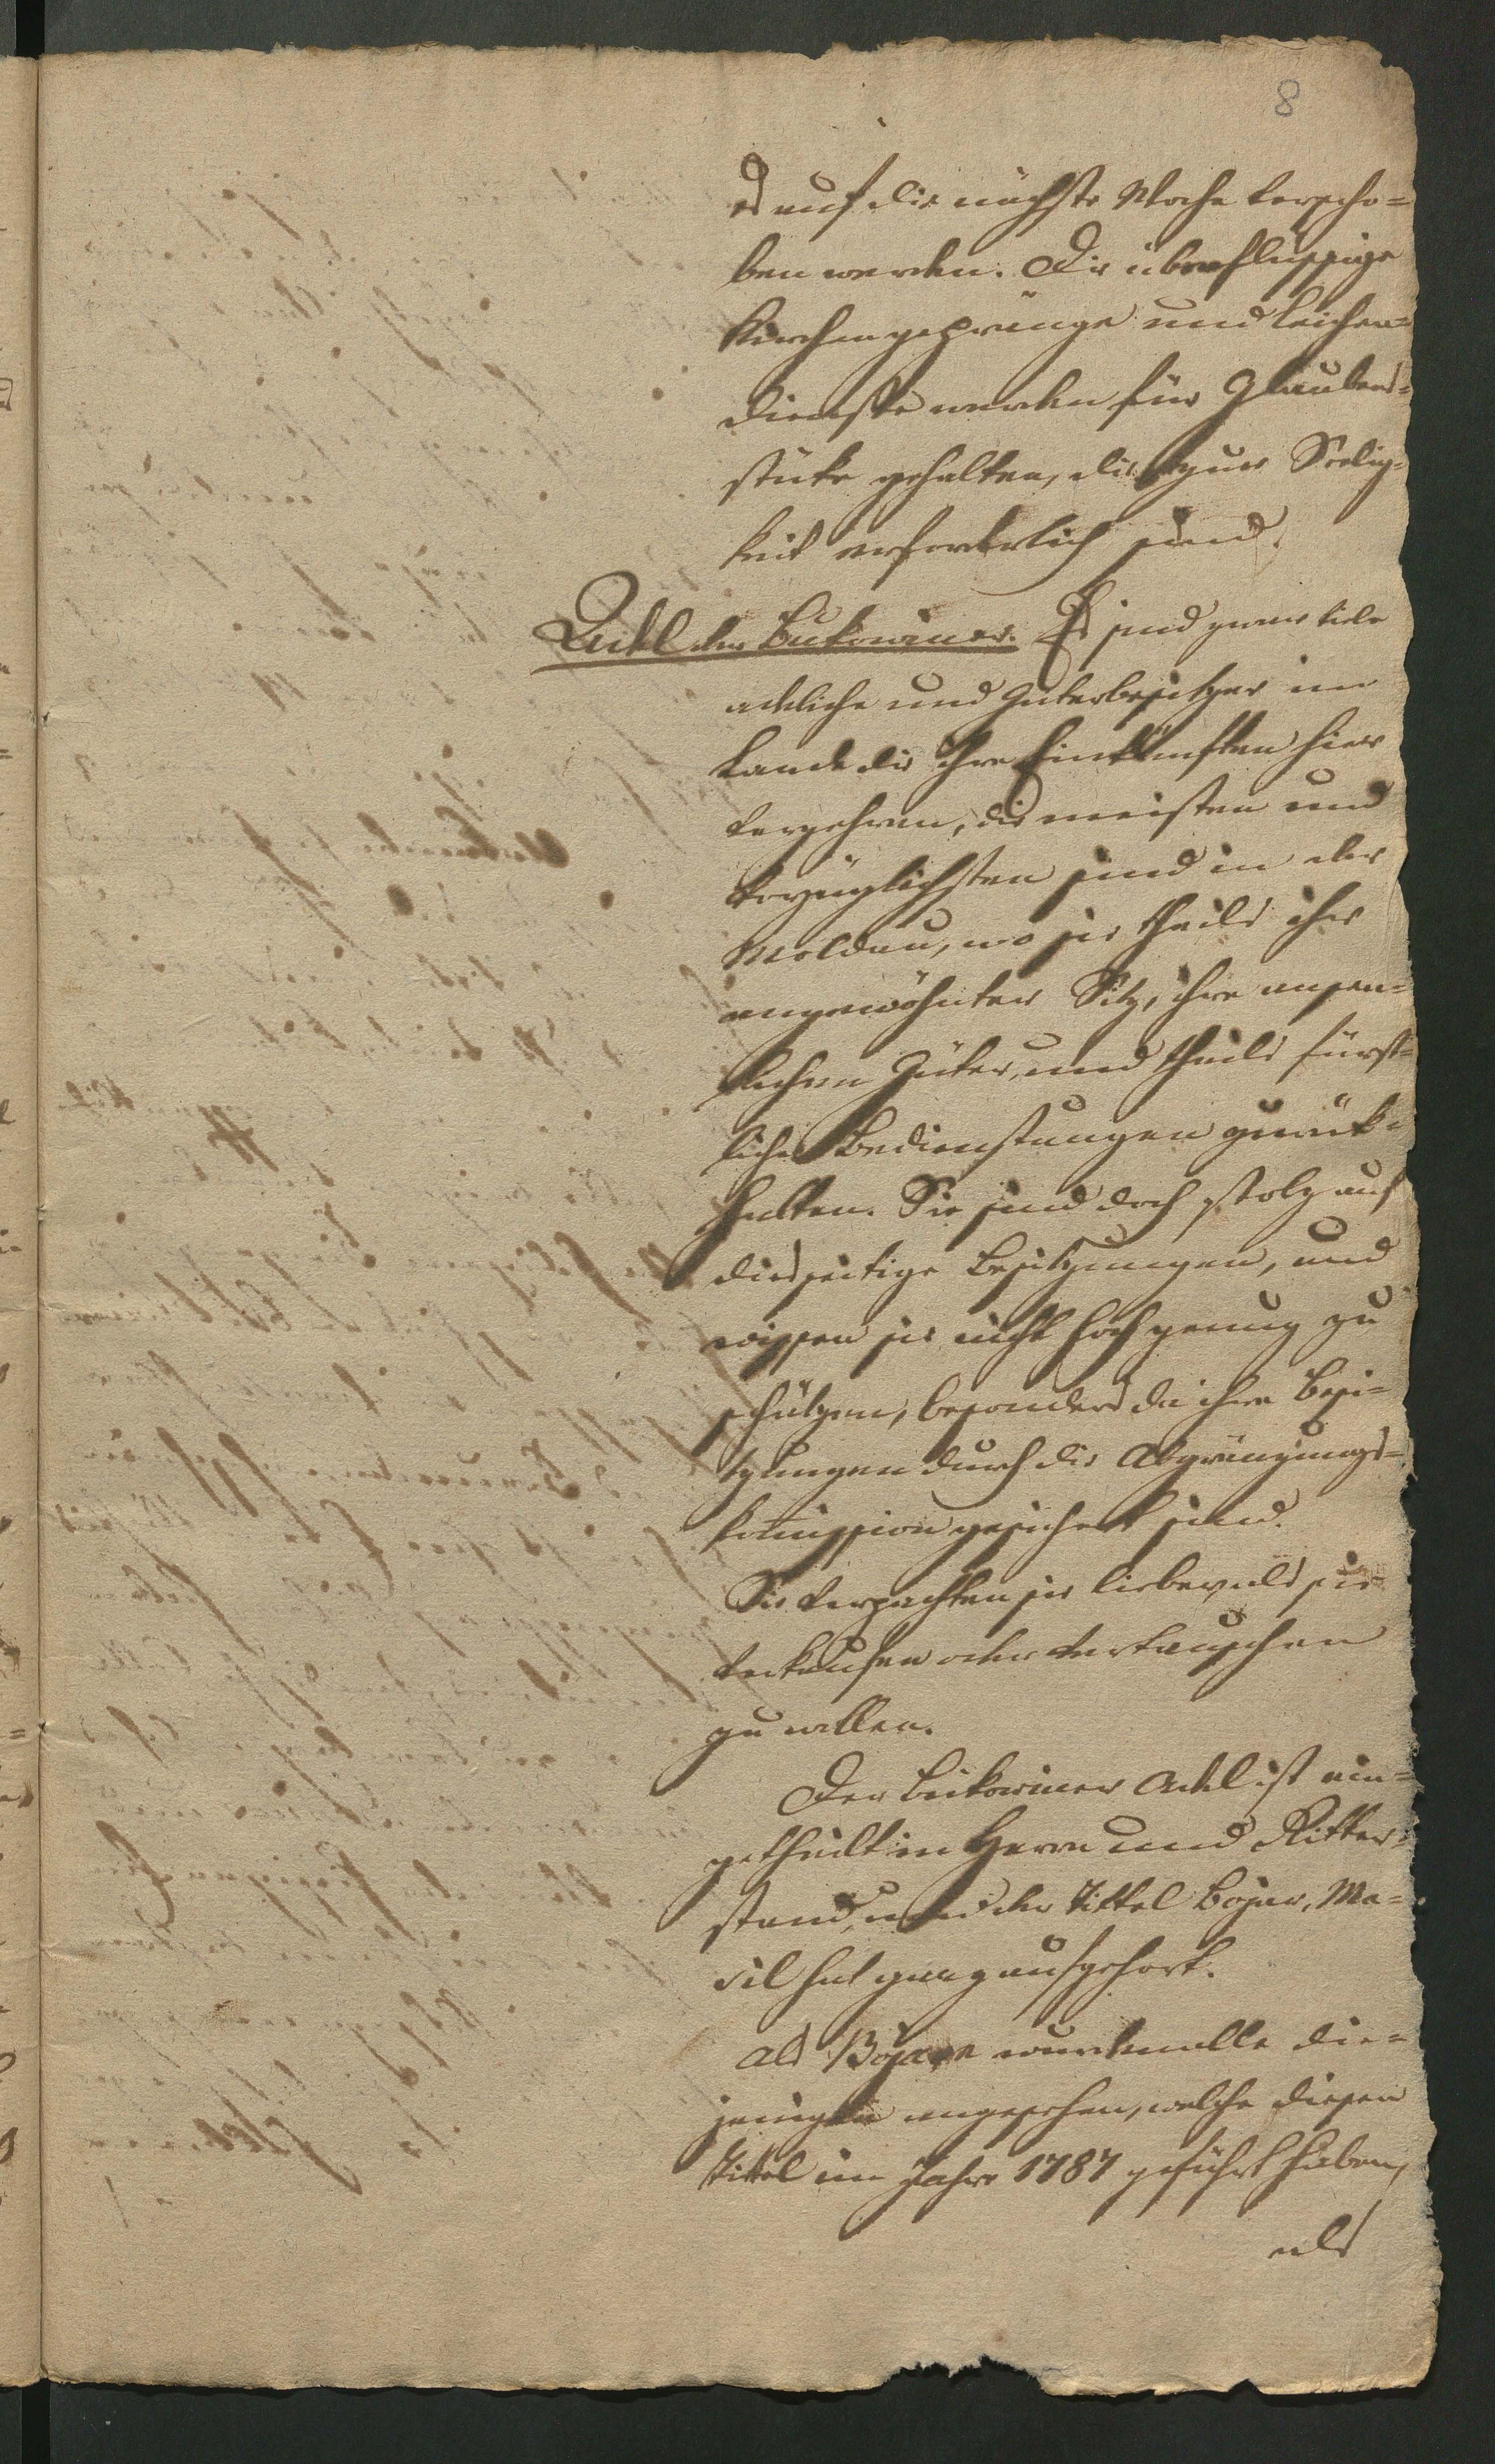 8
es auf die nächste Woche verscho=
ben werden. Die überflüssige
Kirchengepränge und Leichen=
dienste werden für Glaubens=
stüke gehalten, die zur Seelig=
keit erforderlich sind.
Adel der Bukowiner. Es sind zwar viele
adeliche und Güterbesitzer im
Lande die ihre Einkünften hier
verzehren, die meisten und
vorzüglichsten sind in der
Moldau, wo sie theils ihr
angewöhnter Sitz, ihre ansen=
lichen Güter, und theils fürst=
liche Bedienstungen zurük=
halten. Sie sind doch stolz auf
diesseitige Besitzungen, und
wissen sie nicht hoch genug zu
schätzen, besonders da ihre Besi=
tzungen durch die Abgränzungs=
komission gesichert sind.
Sie verpachten sie lieber, als sie
verkaufen oder vertauschen
zu wollen.
Der Bukowiner Adel ist ein=
getheilt in Herrn und Ritter=
stand, und der Tittel Bojar, Ma=
sil hat ganz aufgehört.
Als Bojare wurden alle die=
jenigen angesehen, welche diesen
Tittel im Jahre 1787 geführt haben,
als